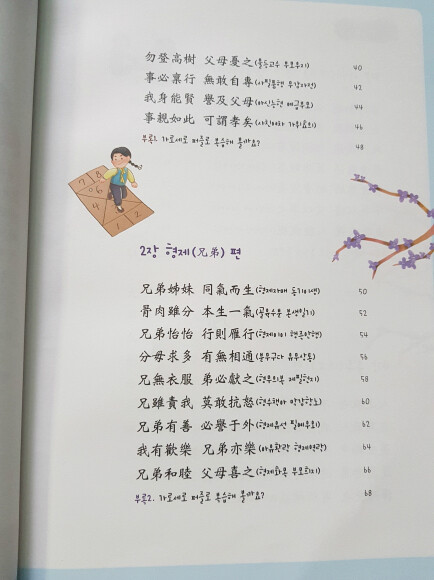 勿登高樹 父母憂之(물등고수 부모우지) 40
事必禀行 無敢自專(사필품행 무감자전) 42
我身能賢 譽及父母(아신능현 예급부모) 44
事親如此 可謂孝矣(사친여차 가위효의) 46
부록1. 가로세로 퍼즐로 복습해 볼까요? 48
7 8
6
4
1 2
2장 형제(兄弟) 편
兄弟姊妹 同氣而生(형제자매 동기이생) 50
骨肉雖分 本生一氣(골육수분 본생일기) 52
兄弟怡怡 行則雁行(형제이이 행즉안행) 54
分毋求多 有無相通(분무구다 유무상통) 56
兄無衣服 弟必獻之(형무의복 제필헌지) 58
兄雖責我 莫敢抗怒(형수책아 막감항노) 60
兄弟有善 必譽于外(형제유선 필예우외) 62
我有歡樂 兄弟亦樂(아유환락 형제역락) 64
兄弟和睦 父母喜之(형제화목 부모희지) 66
부록2. 가로세로 퍼즐로 복습해 볼까요? 68